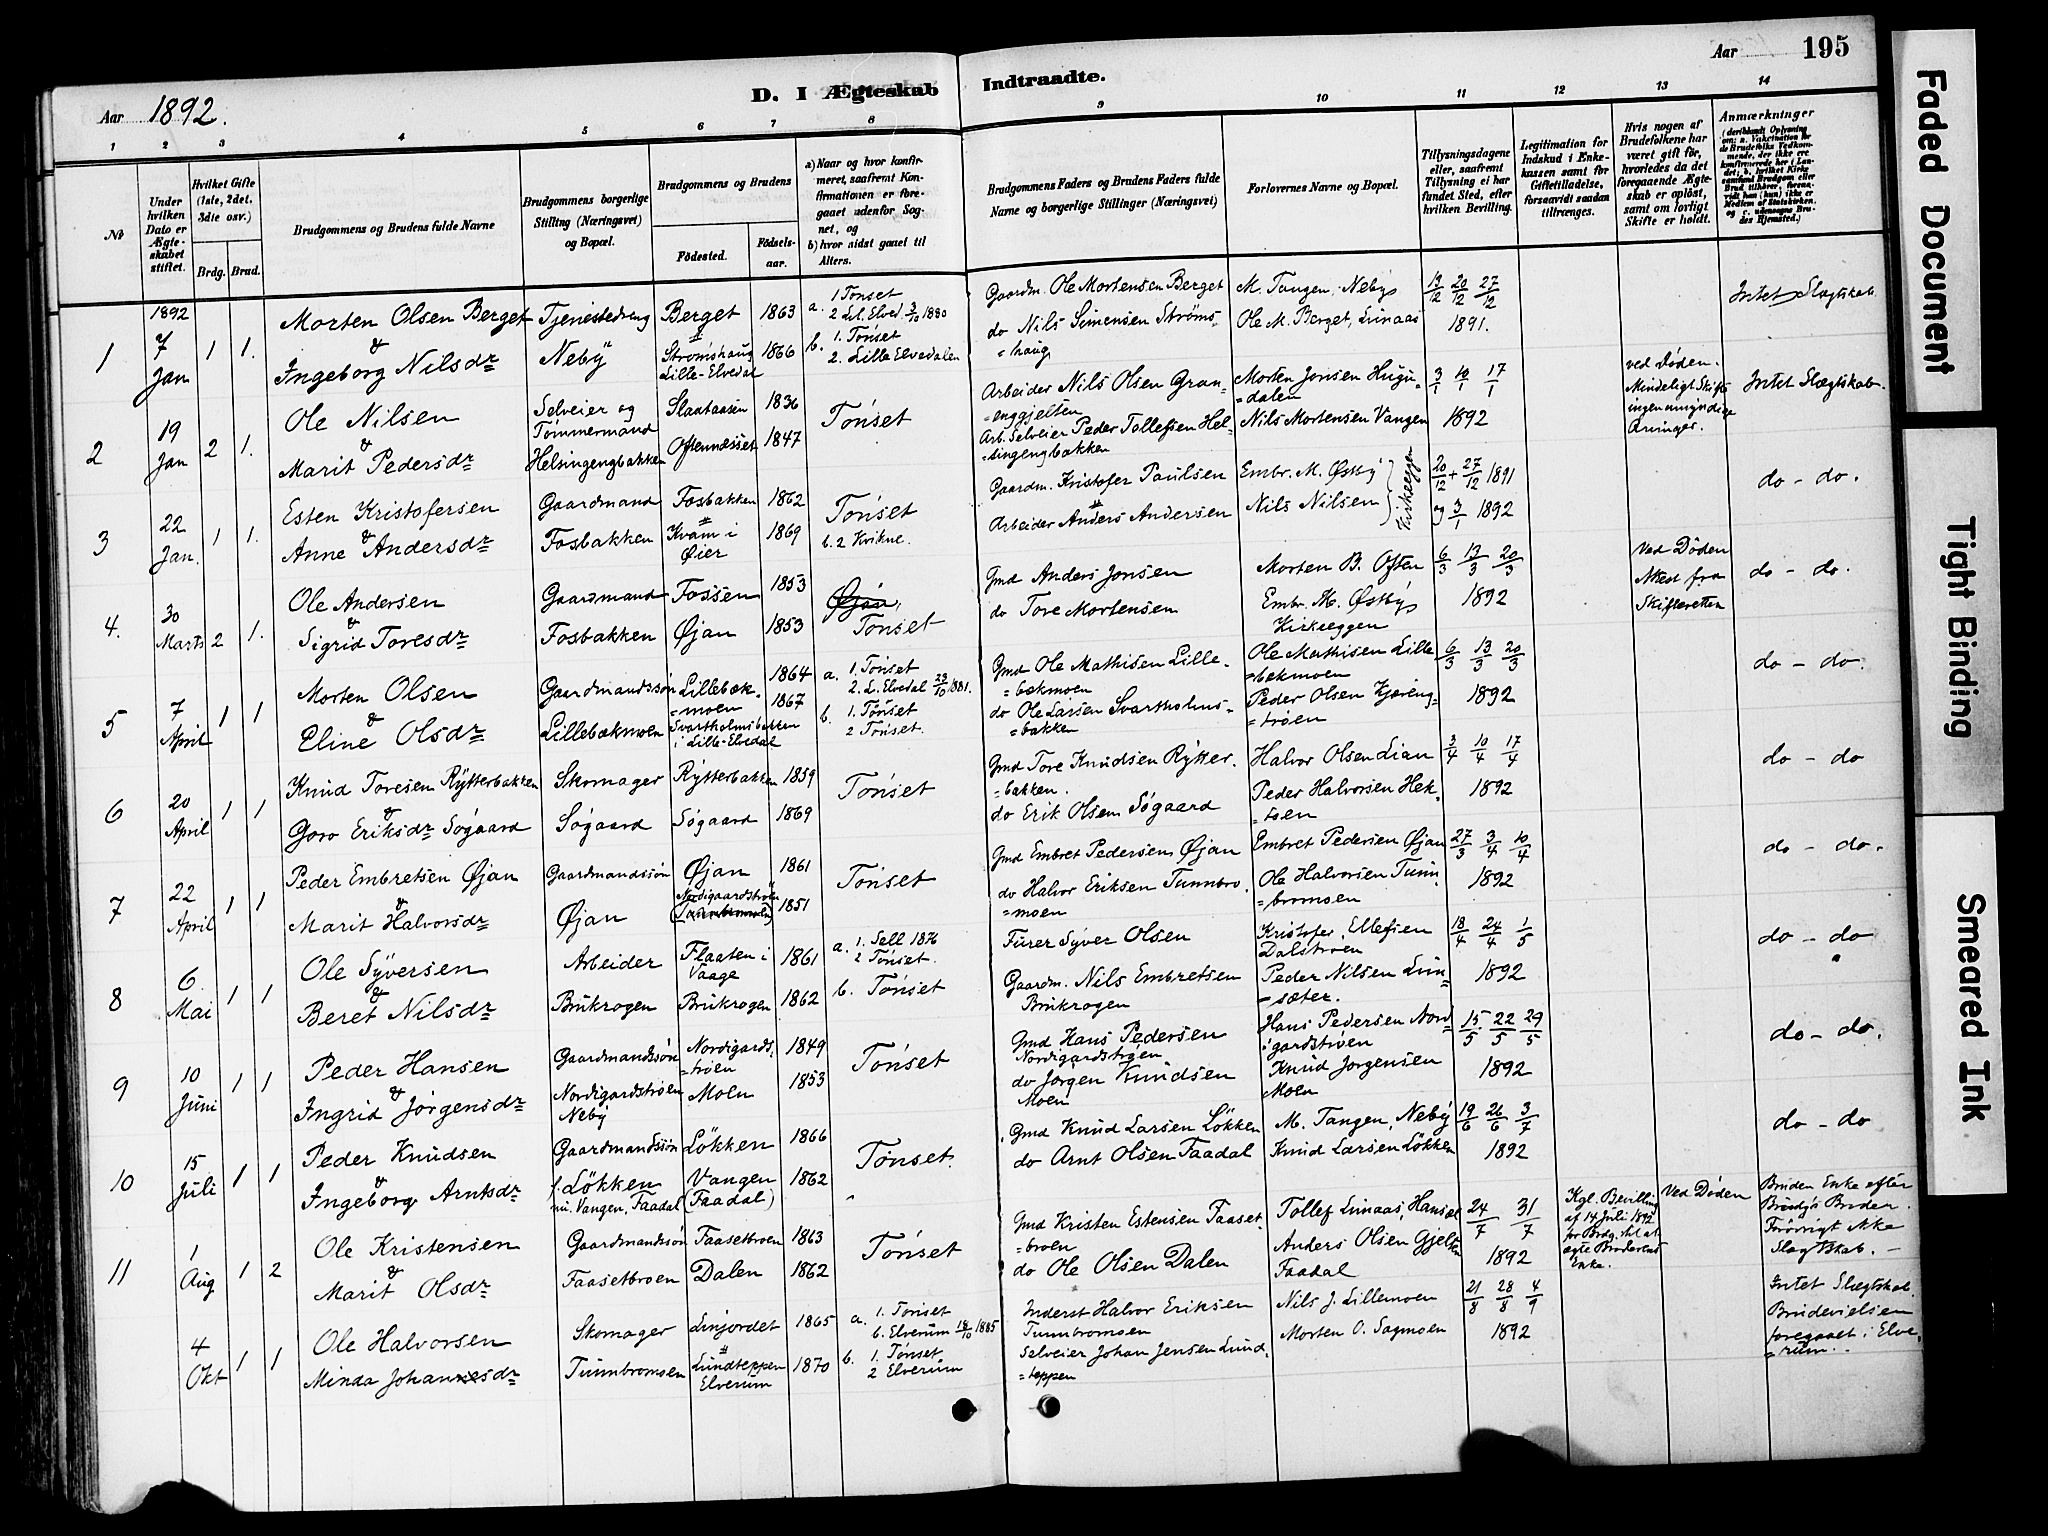 Aar 1892.
D. I Ægteskab Indtraadte.
Aar 195
1 2 3 4 5 6 7 8 9 10 11 12 13 14
No
Under hvilken Dato er Ægteskabet stiftet.
Hvilket Gifte (1ste, 2det, 3die osv.)
Brdg. Brud.
Brudgommens og Brudens fulde Navne
Brudgommens borgerlige Stilling (Næringsvei) og Bopæl.
Brudgommens og Brudens
Födested.
Födsels-aar.
a) Naar og hvor konfirmeret, saafremt Konfirmationen er foregaaet udenfor Sognet, og
b) hvor sidst gaaet til Alters.
Brudgommens Faders og Brudens Faders fulde Navne og borgerlige Stillinger (Næringsvei)
Forlovernes Navne og Bopæl.
Tillysningsdagene eller, saafremt Tillysning ei har fundet Sted, efter hvilken Bevilling.
Legitimation for Indskud i Enkekassen samt for Giftetilladelse, forsaavidt saadan tiltrænges.
Hvis nogen af Brudefolkene har været gift för, hvorledes da det foregaaende Ægteskab er oplöst, samt om lovligt Skifte er holdt.
Anmærkninger
1 1892 7 Jan 1 1.
Morten Olsen Berget
&
Ingeborg Nilsdr
Tjenestedreng
Neby
Berget 1863
Strømshaug Lille-Elvedal 1866
a. 1 Tønset
2 Lil. Elved. 3/10 1880
b. 1. Tønset
2. Lille Elvedalen
Gaardm. Ole Mortensen Berget
do Nils Simensen Strøms-
=haug
M. Tangen, Neby
Ole M. Berget, Lunaas
13/12 20/12 27/12
1891.
Intet Slægtskab
2 19 Jan 2 1.
Ole Nilsen
&
Marit Pedersdr
Selveier og
Tømmermand
Helsingengbakken
Slaataasen 1836
Oftennesset 1847
Tønset
Arbeider Nils Olsen Gran-
=enggjelten
Arb. Selveier Peder Tollefsen Hel-
=singengbakken
Morten Jonsen Hugu-
=dalen
Nils Mortensen Vangen
3/1 10/1 17/1
1892
ved Døden.
Mindeligt Skifte
ingen umyndige
Arvinger.
Intet Slægtskab.
3 22 Jan. 1 1.
Esten Kristofersen
&
Anne Andersdr
Gaardmand
Fosbakken
Fosbakken 1862
Kvam i Øier 1869
Tønset
b. 2 Kvikne.
Gaardm. Kristofer Paulsen
Arbeider Anders Andersen
Embr. M. Østby
Nils Nilsen
Kirkeeggen
20/12 + 27/12 1891
og 3/1 1892
do - do.
4. 30 Marts 2 1.
Ole Andersen
&
Sigrid Toresdr
Gaardmand
Fosbakken
Fossen 1853
Øjan 1853
Øjan,
Tønset
Gmd Anders Jonsen
do Tore Mortensen
Morten B. Often
Embr. M. Østby
Kirkeeggen
6/3 13/3 20/3
1892
Ved Døden
Attest fra
Skifteretten
do - do.
5 7 April 1 1
Morten Olsen
&
Eline Olsdr
Gaardmandssøn
Lillebækmoen
Lillebæk-
=moen 1864
Svartholmsbakken
i Lille-Elvedal 1867
a. 1. Tønset
2. L. Elvedal 23/10 1881.
b. 1. Tønset
2 Tønset.
Gmd Ole Mathisen Lille-
=bækmoen
do Ole Larsen Svartholms-
=bakken
Ole Mathisen Lille
=bækmoen
Peder Olsen Kjæreng-
=trøen
6/3 13/3 20/3
1892
do - do.
6 20 April 1 1
Knud Toresen Rytterbakken
&
Goro Eriksdr Søgaard
Skomager
Søgaard
Rytterbakken 1859
Søgaard 1869
Tønset
Gmd Tore Knudsen Rytter.
=bakken.
do Erik Olsen Søgaard
Halvor Olsen Lian
Peder Halvorsen Hek-
=toen
3/4 10/4 17/4
1892
do - do
7 22 April 1 1
Peder Embretsen Øjan
&
Marit Halvorsdr
Gaardmandssøn
Øjan
Øjan 1861
Nordigaardstrøen
(Tunnbromoen) 1851
Tønset
Gmd Embret Pedersen Øjan
do Halvor Eriksen Tunnbro.
=moen
Embret Pedersen Øjan
Ole Halvorsen Tunn-
=bromoen
27/3 3/4 10/4
1892
do - do.
8 6 Mai 1 1
Ole Syversen
&
Beret Nilsdr
Arbeider
Brukrogen
Flaaten i Vaage 1861
Brukrogen 1862
a. 1. Sell 1876
2 Tønset.
b. Tønset
Furer Syver Olsen
Gaardm. Nils Embretsen
Brukrogen
Kristofer Ellefsen
Dalstrøen
Peder Nilsen Lun-
=sæter.
18/4 24/4 1/5
1892
do - do
9 10 Juni 1 1
Peder Hansen
&
Ingrid Jørgensdr
Gaardmandssøn
Nordigardstrøen
Neby
Nordigards.
=trøen 1849
Moen 1853
Tønset
Gmd Hans Pedersen
Nordigardstrøen
do Jørgen Knudsen
Moen
Hans Pedersen Nord
igardstrøen
Knud Jørgensen
Moen
15/5 22/5 29/5
1892
do - do.
10 15 Juli 1 1
Peder Knudsen
&
Ingeborg Arntsdr
Gaardmandssøn
f. Løkken
nu. Vangen, Faadal
Løkken 1866
Vangen
(Faadal) 1862
Tønset.
Gmd Knud Larsen Løkken
do Arnt Olsen Faadal
M. Tangen, Neby
Knud Larsen Løkken
19/6 26/6 3/7
1892
do - do
11 1 Aug 1 2
Ole Kristensen
&
Marit Olsdr
Gaardmandssøn
Faasetbroen
Faasetbroen 1863
Dalen 1862
Tønset
Gmd Kristen Estensen Faaset-
=broen
do Ole Olsen Dalen
Tollef Lunaas, Hans
Anders Olsen Gjelten
Faadal
24/7 31/7
1892
Kgl. Bevilling
af 14 Juli 1892
for Brdg. til at
ægte Broderens
Enke.
Ved Døden
Bruden Enke efter
Brudg's Broder.
Forøvrigt ikke
Slægtskab. -
4 Okt 1 1
Ole Halvorsen
Minda Johannesdr
Skomager
Tunnbromoen
Linjordet 1865
Lundteppen
Elverum 1870
a. 1. Tønset
b. Elverum 18/10 1885
b. 1. Tønset
2 Elverum
Inderst Halvor Eriksen
Tunnbromoen
Selveier Johan Jensen Lund.
=teppen
Nils J. Lillemoen
Morten O. Sagmoen
21/8 28/8 4/9
1892
Intet Slægtskab.
Brudevielsen
foregaaet i Elve-
=rum.
Faded Document
Tight Binding
Smeared Ink